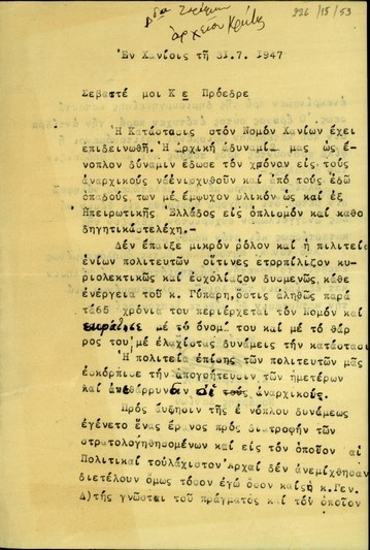 226/15/53
ἀρχεῖον Κρήτης
Ἐν Χανίοις τῇ 31.7.1947
Σεβαστέ μοι Κε Πρόεδρε
Ἡ Κατάστασις στόν Νομόν Χανίων ἔχει
ἐπιδεινωθῆ. Ἡ ἀρχική ἀδυναμία μας ὡς ἐ
νοπλον δύναμιν ἔδωσε τόν χρόναν εἰς τούς
ἀναρχικούς νάἐνισχυθοῦν καί ἀπό τούς ἐδῶ
ὀπαδούς των μέ ἔμψυχον ὑλικόν ὡς καί ἐξ
Ἠπειρωτικῆς Ἑλλάδος εἰς ὁπλισμόν καί καθο
δηγητικάστελέχη.-
Δέν ἔπαιξε μικρόν ρόλον καί ἡ πιλιτεία
ἐνίων πολιτευτῶν οὕτινες ἐτορπίλιζον κυ-
ριολεκτικῶς καί ἐσχολίαζον δυσμενῶς, κάθε
ἐνέργεια τοῦ κ. Γύπαρη, ὅστις ἀληθῶς παρά
τά65 χρόνια του περιέρχεται τόν Νομόν καί
μέ τό ὄνομά του καί μέ τό θάρ
ρος του μέ ἐλαχίστας δυνάμεις τήν κατάστασι
Ἡ πολιτεία ἐπίσης τῶν πολιτευτῶν μας
ἐσκόρπισε τήν ἀπογοήτευσιν τῶν ἡμετέρων
καί τούς ἀναρχικούς.
Πρός αὔξησιν τῆς ἐνόπλου δυνάμεως
ἐγένετο ἕνας ἔρανος πρός διατροφήν τῶν
στρατολογηθησομένων καί εἰς τόν ὁποῖον αἱ
Πολιτικαί τοὐλάχιστον Ἀρχαί δέν ἀνεμίχθησαν
διετέλουν ὅμως τόσον ἐγώ ὅσον καίἡ κ. Γεν.
Δ)τής γνῶσται τοῦ πράγματός καί τόν ὁποῖον